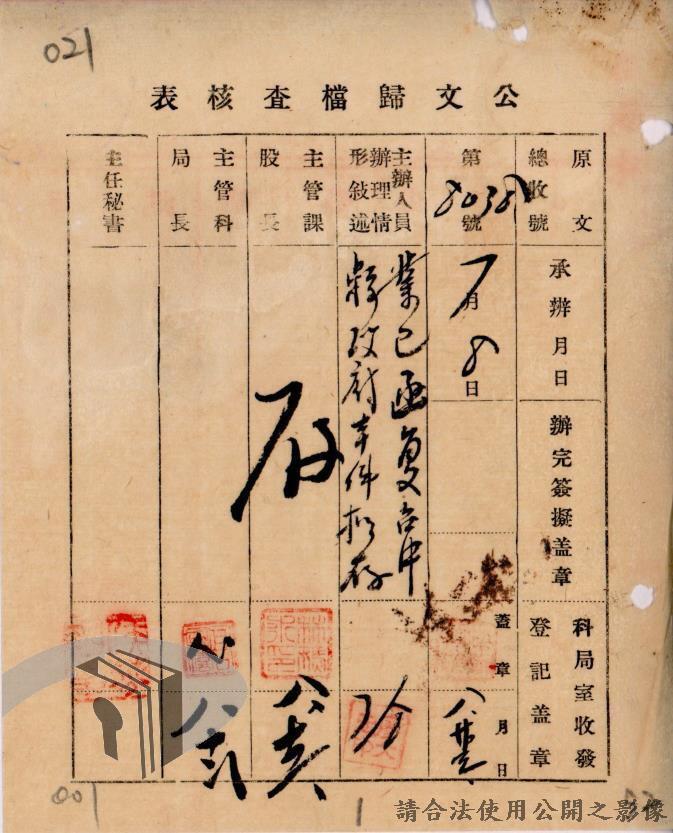 021
公文歸檔查核表
原文總收號
第8038號
承辦月日
7月8日
辦完簽擬蓋章
科局室收發登記蓋章
蓋章
月日
主辦人員辦理情形敘述
業已函复台中
縣政府本件擬存
主管課股長
存
主管科局長
主任秘書
001
1
請合法使用公開之影像